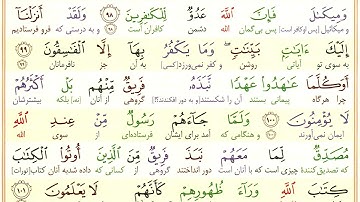 وَمِيكَىٰلَ فَإِنَّ ٱللَّهَ عَدُوٌّ لِّلْكَٰفِرِينَ ٩٨ وَلَقَدْ أَنزَلْنَآ
و میکائیل [پس او کافر است] پس بی‌گمان الله دشمن کافران است و به درستی که فرو فرستادیم
إِلَيْكَ ءَايَٰتٍۭ بَيِّنَٰتٍ وَمَا يَكْفُرُ بِهَآ إِلَّا ٱلْفَٰسِقُونَ ٩٩
به سوی تو آیاتی روشن و کفر نمی‌ورزد به آن جز نافرمانان
أَوَكُلَّمَا عَٰهَدُوا۟ عَهْدًا نَّبَذَهُۥ فَرِيقٌ مِّنْهُم بَلْ أَكْثَرُهُمْ
چرا هرگاه پیمانی بستند آن را گروهی از آنان بلکه بیشترشان
لَا يُؤْمِنُونَ ١٠٠ وَلَمَّا جَآءَهُمْ رَسُولٌ مِّنْ عِندِ ٱللَّهِ
ایمان نمی‌آورند و هنگامی که آمد برای ایشان فرستاده‌ای از سوی الله
مُصَدِّقٌ لِّمَا مَعَهُمْ نَبَذَ فَرِيقٌ مِّنَ ٱلَّذِينَ أُوتُوا۟ ٱلْكِتَٰبَ
که تصدیق کنندهٔ چیزی است که با آنان است دور انداختند گروهی از کسانی که داده شدند کتاب
كِتَٰبَ ٱللَّهِ وَرَآءَ ظُهُورِهِمْ كَأَنَّهُمْ لَا يَعْلَمُونَ ١٠١